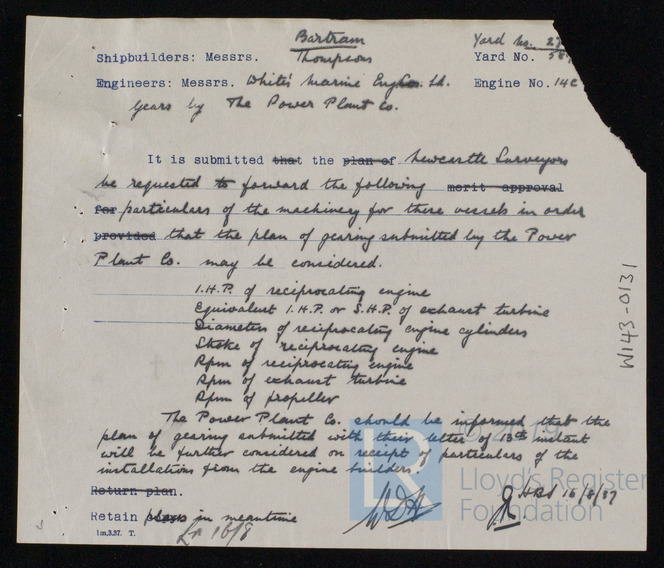 Bartram Yard No. 27
Shipbuilders: Messrs. Thompsons Yard No. 58
Engineers: Messrs. White's Marine Eng Co. Ld. Engine No. 14
Gears by The Power Plant Co.
It is submitted that the plan of Newcastle Surveyors
be requested to forward the following merit approval
for particulars of the machinery for these vessels in order
provided that the plan of gearing submitted by the Power
Plant Co. may be considered.
I.H.P. of reciprocating engine
Equivalent I.H.P. or S.H.P. of exhaust turbine
Diameters of reciprocating engine cylinders
Stroke of reciprocating engine
Rpm of reciprocating engine
Rpm of exhaust turbine
Rpm of propeller
The Power Plant Co. should be informed that the
plan of gearing submitted with their letter of 13th instant
will be further considered on receipt of particulars of the
installations from the engine builders.
Return plan.
Retain plans in meantime
16/8
16/8/37
1m,3.37. T.
W143-0131
© 2019
LR
Lloyd's Register
Foundation